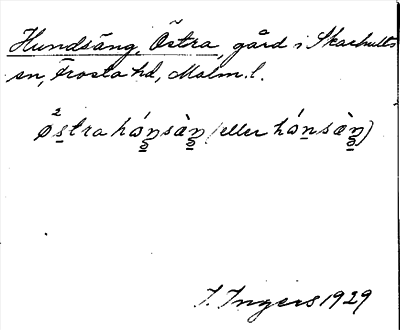 Hundsäng, Östra, gård i Skarhults
sn, Frosta hd, Malm. l.
östra hóŋsàŋ (eller hónsàŋ)
I. Ingers 1929